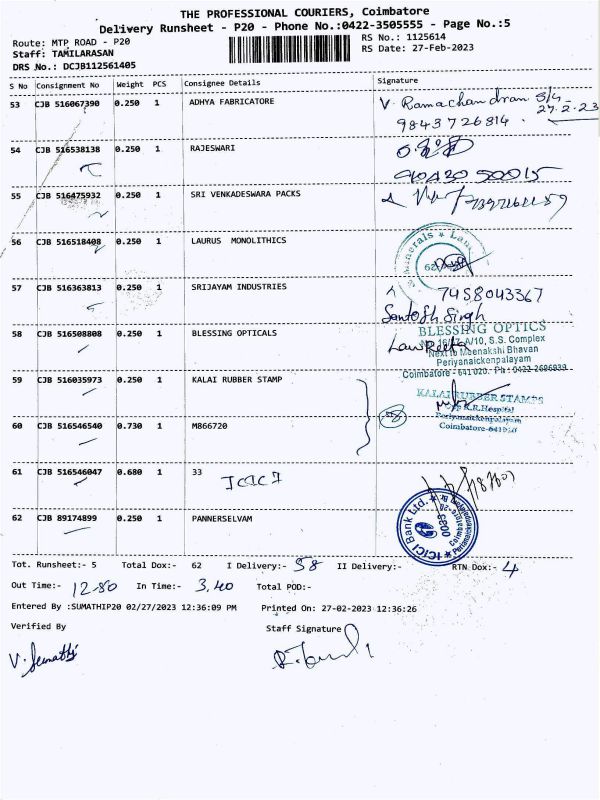 THE PROFESSIONAL COURIERS, Coimbatore
Delivery Runsheet - P20 - Phone No.:0422-3505555 - Page No.:5
Route: MTP ROAD - P20
RS No.: 1125614
Staff: TAMILARASAN
RS Date: 27-Feb-2023
DRS No.: DCJB112561405
S No Consignment No Weight PCS Consignee Details Signature
53 CJB 516067390 0.250 1 ADHYA FABRICATORE
V. Ramachandran
27.2.23
9843726814
54 CJB 516538138 0.250 1 RAJESWARI
55 CJB 516475932 0.250 1 SRI VENKADESWARA PACKS
56 CJB 516518408 0.250 1 LAURUS MONOLITHICS
57 CJB 516363813 0.250 1 SRIJAYAM INDUSTRIES
7458043367
Santosh Singh
58 CJB 516508808 0.250 1 BLESSING OPTICALS
BLESSING OPTICS
A/10, S.S. Complex
Next to Meenakshi Bhavan
Periyanaickenpalayam
Coimbatore - 641 020. Ph: 0422-2696939
59 CJB 516035973 0.250 1 KALAI RUBBER STAMP
KALAI RUBBER STAMPS
K.R.Hospital
Periyanaickenpalayam
Coimbatore-641020
60 CJB 516546540 0.730 1 M866720
58
61 CJB 516546047 0.680 1 33
ICICI
ICICI Bank Ltd.
0033
62 CJB 89174899 0.250 1 PANNERSELVAM
Tot. Runsheet:- 5 Total Dox:- 62 I Delivery:- 58 II Delivery:- RTN Dox:- 4
Out Time:- 12.80 In Time:- 3.40 Total POD:-
Entered By :SUMATHIP20 02/27/2023 12:36:09 PM Printed On: 27-02-2023 12:36:26
Verified By Staff Signature
V. Sumathi